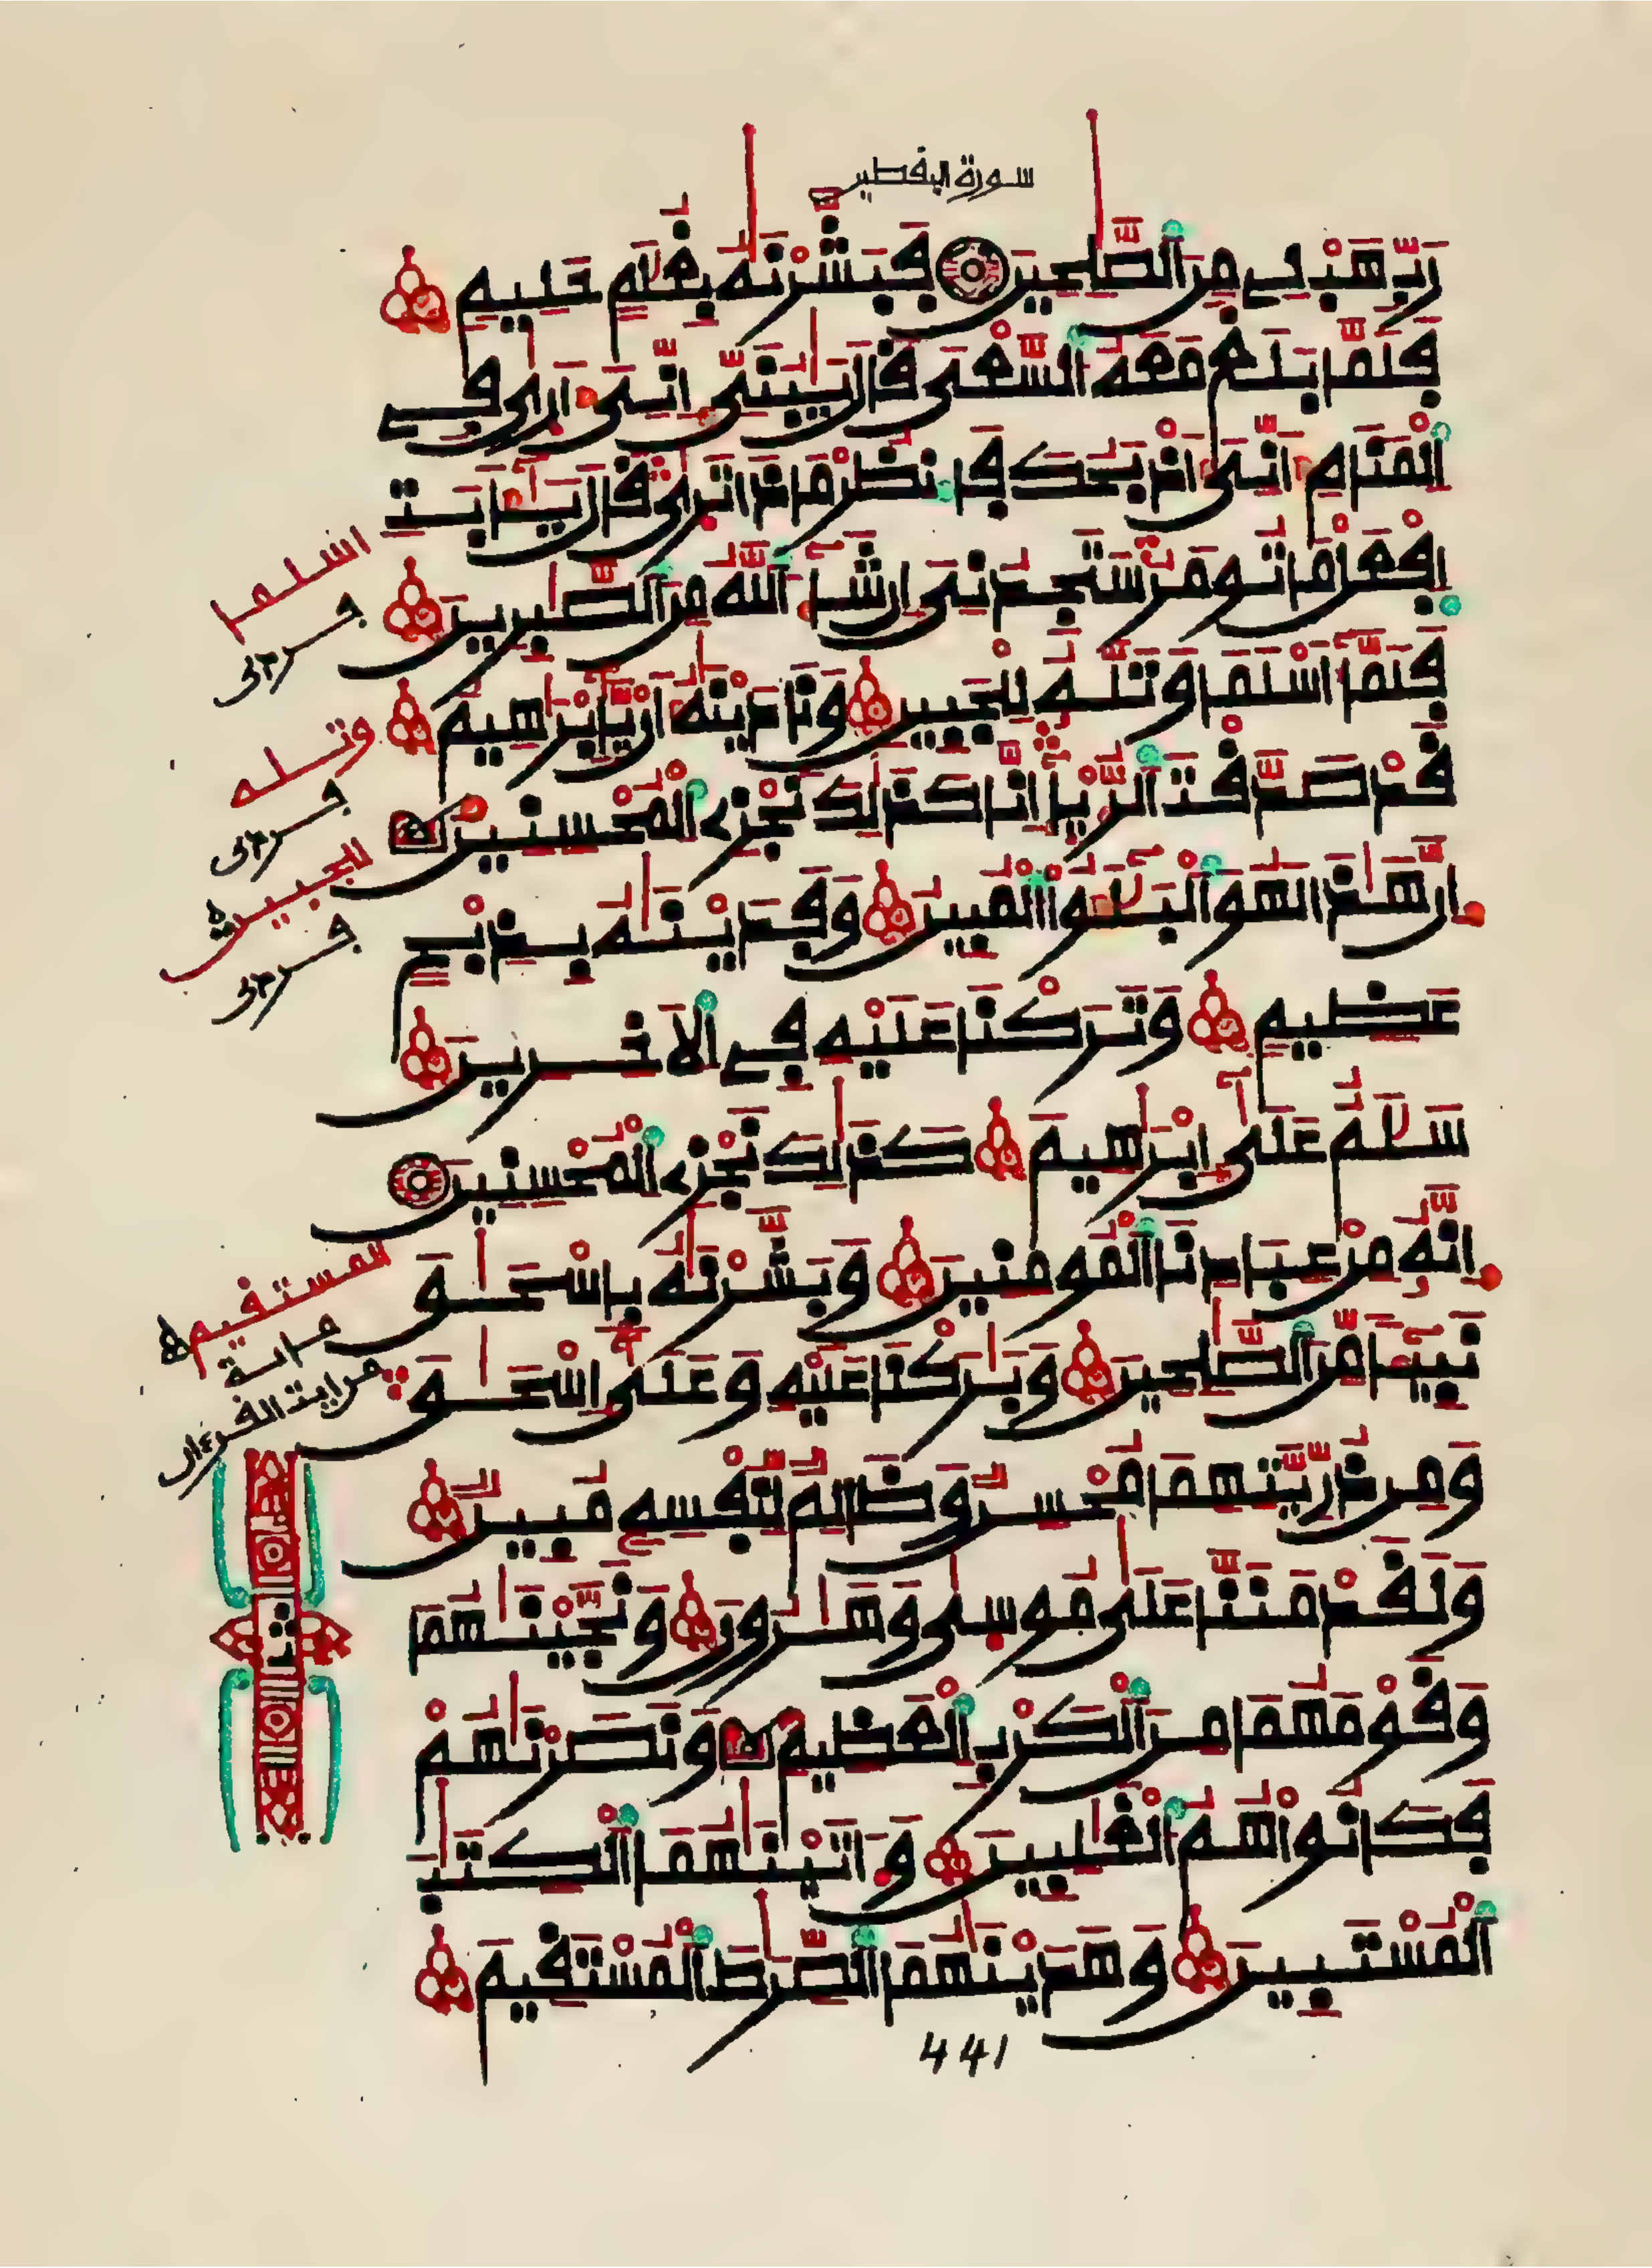 سورة اليقطين
رَبِّ هَبْ لِي مِنَ ٱلصَّٰلِحِينَ فَبَشَّرْنَٰهُ بِغُلَٰمٍ حَلِيمٍ
فَلَمَّا بَلَغَ مَعَهُ ٱلسَّعْيَ قَالَ يَٰبُنَيِّ إِنِّيَ أَرَىٰ فِي
ٱلْمَنَامِ أَنِّيَ أَذْبَحُكَ فَٱنظُرْ مَاذَا تَرَىٰ قَالَ يَٰٓأَبَتِ
ٱفْعَلْ مَا تُومَرُ سَتَجِدُنِيَ إِن شَآءَ ٱللَّهُ مِنَ ٱلصَّٰبِرِينَ
فَلَمَّآ أَسْلَمَا وَتَلَّهُۥ لِلْجَبِينِ وَنَٰدَيْنَٰهُ أَنْ يَّٰٓإِبْرَٰهِيمُ
قَدْ صَدَّقْتَ ٱلرُّءْيَآ إِنَّا كَذَٰلِكَ نَجْزِي ٱلْمُحْسِنِينَ
إِنَّ هَٰذَا لَهُوَ ٱلْبَلَٰٓؤُاْ ٱلْمُبِينُ وَفَدَيْنَٰهُ بِذِبْحٍ
عَظِيمٍ وَتَرَكْنَا عَلَيْهِ فِي ٱلَاخِرِينَ
سَلَٰمٌ عَلَىٰٓ إِبْرَٰهِيمَ كَذَٰلِكَ نَجْزِي ٱلْمُحْسِنِينَ
إِنَّهُۥ مِنْ عِبَادِنَا ٱلْمُومِنِينَ وَبَشَّرْنَٰهُ بِإِسْحَٰقَ
نَبِيٓـًٔا مِّنَ ٱلصَّٰلِحِينَ وَبَٰرَكْنَا عَلَيْهِ وَعَلَىٰٓ إِسْحَٰقَ
وَمِن ذُرِّيَّتِهِمَا مُحْسِنٌ وَظَالِمٌ لِّنَفْسِهِۦ مُبِينٌ
وَلَقَدْ مَنَنَّا عَلَىٰ مُوسَىٰ وَهَٰرُونَ وَنَجَّيْنَٰهُمَا
وَقَوْمَهُمَا مِنَ ٱلْكَرْبِ ٱلْعَظِيمِ وَنَصَرْنَٰهُمْ
فَكَانُواْ هُمُ ٱلْغَٰلِبِينَ وَءَاتَيْنَٰهُمَا ٱلْكِتَٰبَ
ٱلْمُسْتَبِينَ وَهَدَيْنَٰهُمَا ٱلصِّرَٰطَ ٱلْمُسْتَقِيمَ
441
اسلما
وتله
للجبين
المستقيم
ثمن